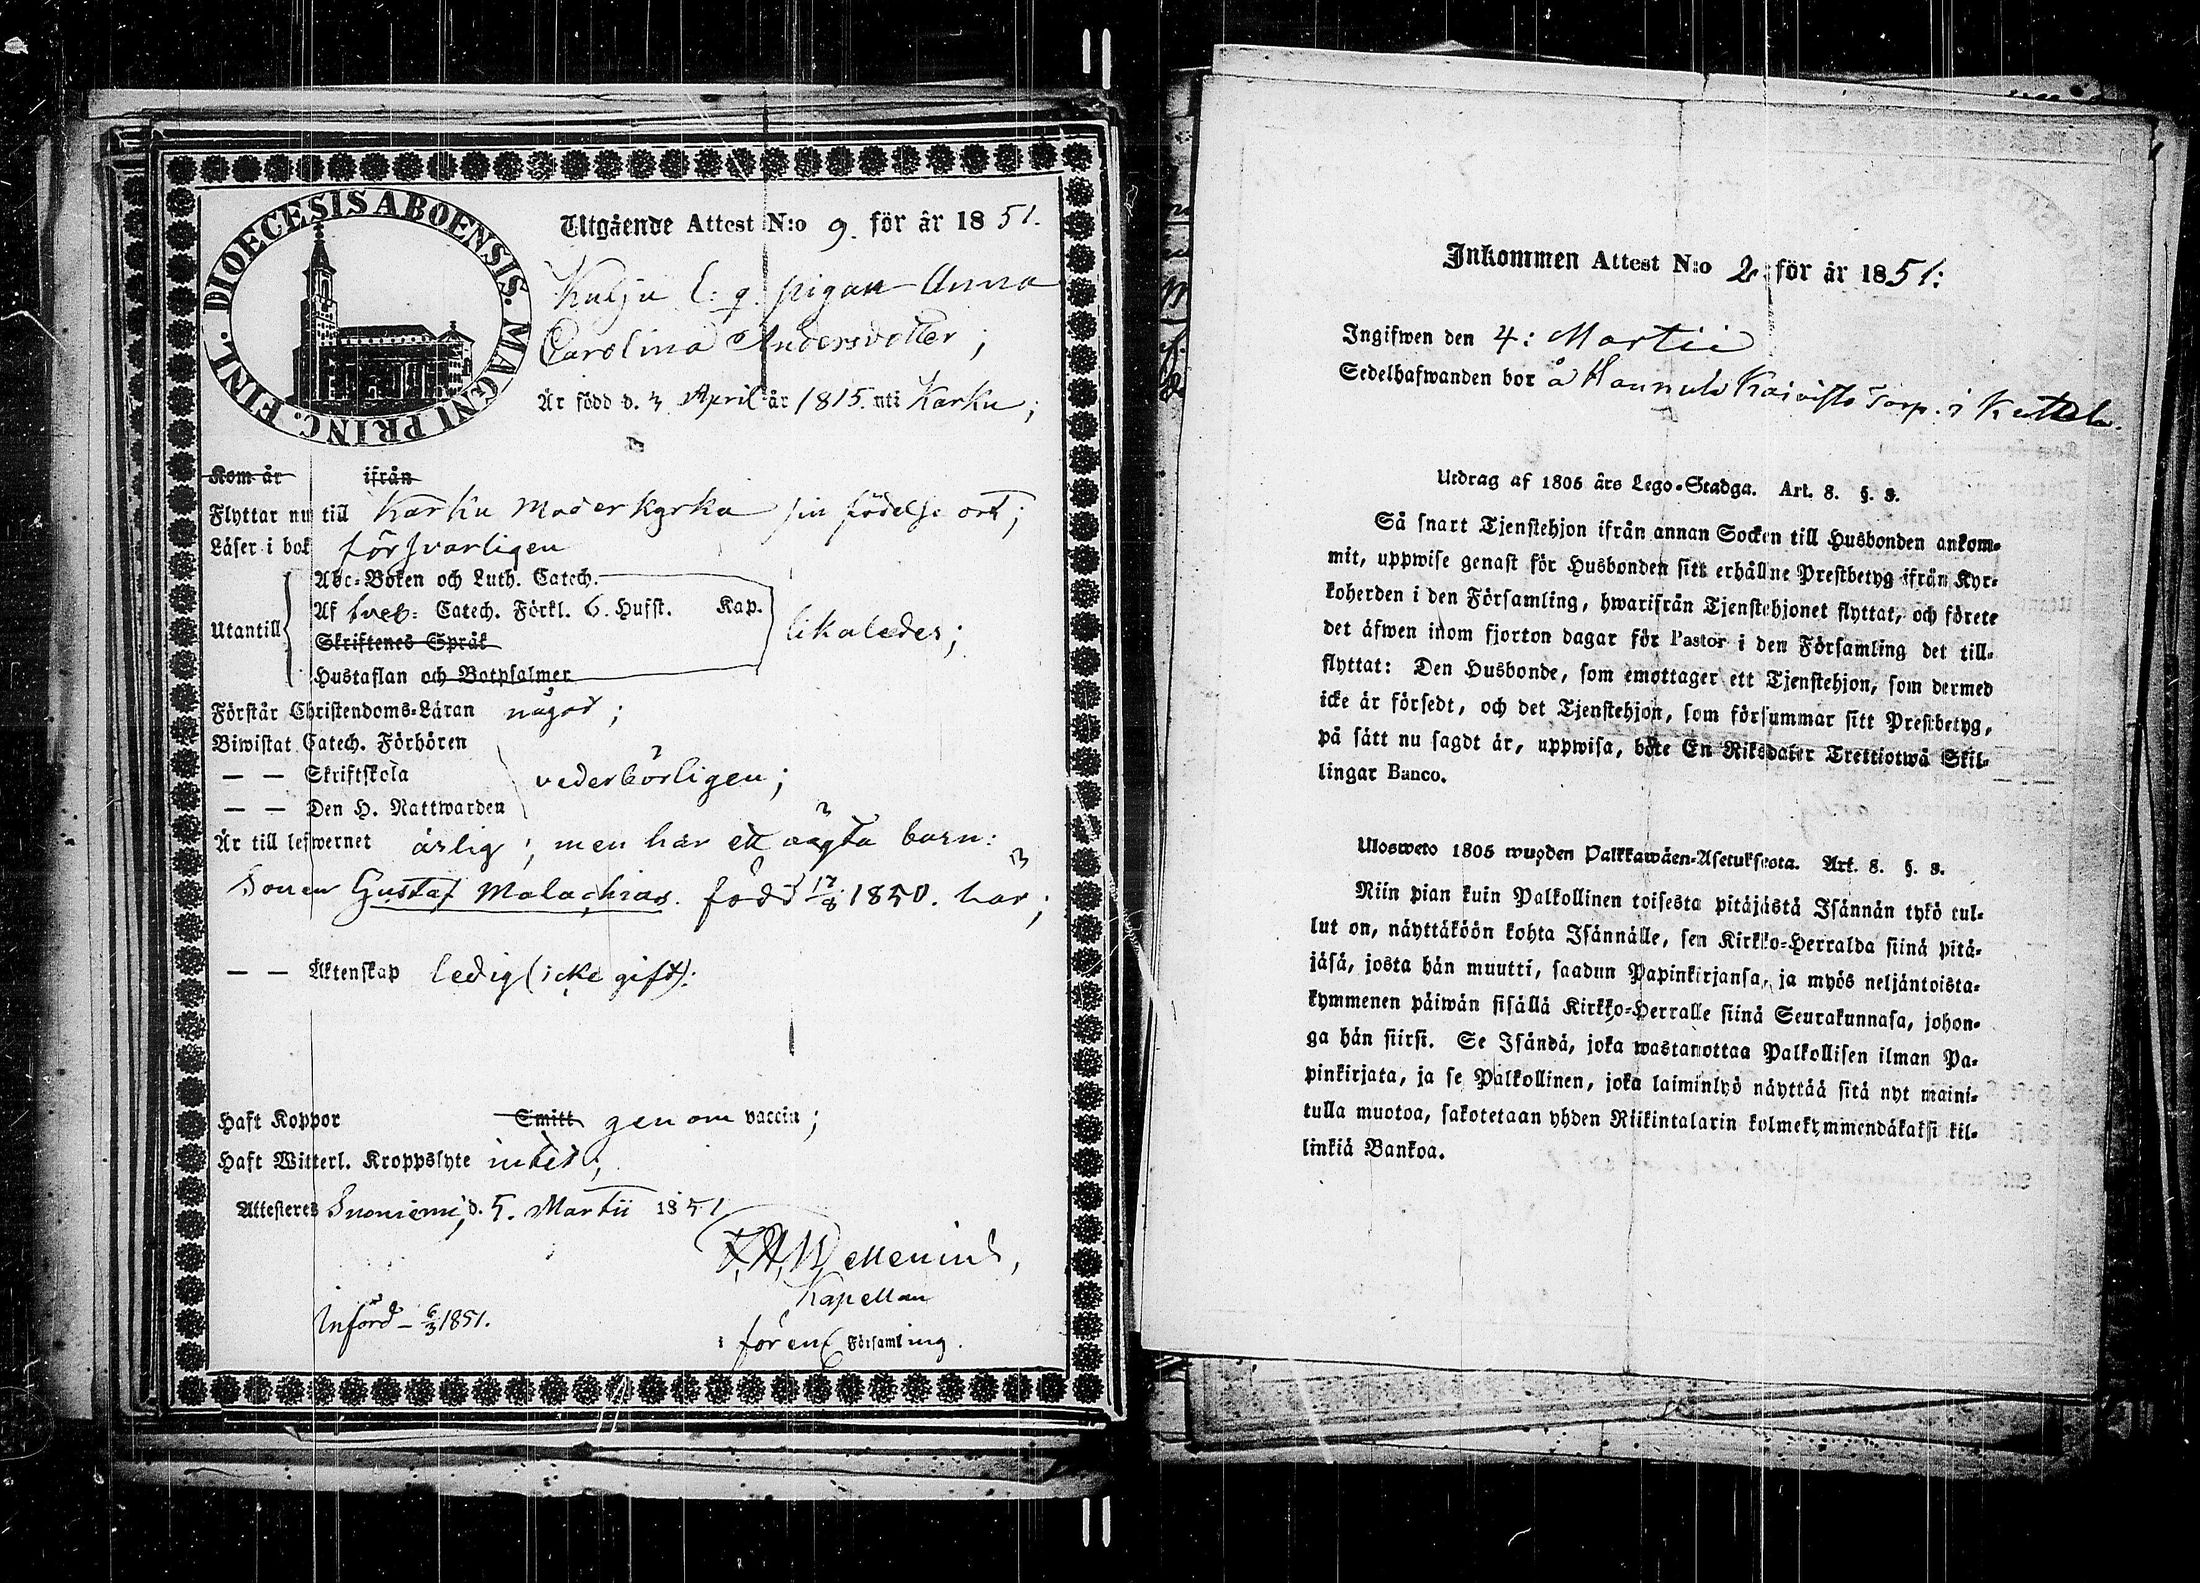 DIOECESIS ABOENSIS. MAGNI PRINC. FINL.
Utgående Attest N:o 9. för år 1851.
Kulju l: q. pigan Anna
Carolina Andersdotter;
Är född d. 3 April år 1815. uti Karku;
Kom år ifrån
Flyttar nu till Karku moderkyrka sin födelse ort;
Läser i bok försvarligen
Abc-Boken och Luth. Catech.
Utantill Af Sveb: Catech. Förkl. 6. Hufst. Kap. likaledes;
Skriftenes Språk
Hustaflan och Botpsalmer
Förstår Christendoms-Läran något;
Biwistat Catech. Förhören
— — Skriftskola vederbörligen;
— — Den H. Nattwarden
Är till lefwernet ärlig; men har ett oägta barn:
Sonen Gustaf Malachias. född 17/8 1850. här;
— — Äktenskap ledig (icke gift):
Haft Koppor Smitt genom vaccin;
Haft Witterl. Kroppslyte intet;
Attesteres Suoniemi, d. 5. Martii 1851
F. A. Wellenius,
Kapellan
Införd — 6/3 1851.
i förenl Församling.
Inkommen Attest N:o 2 för år 1851:
Ingifwen den 4: Martii
Sedelhafwanden bor å Hannula Kaivisto Torp. i Kuttala.
Utdrag af 1805 års Lego-Stadga. Art. 8. §. 3.
Så snart Tjenstehjon ifrån annan Socken till Husbonden ankom-
mit, uppwise genast för Husbonden sitt erhållne Prestbetyg ifrån Kyr-
koherden i den Församling, hwarifrån Tjenstehjonet flyttat, och förete
det äfwen inom fjorton dagar för Pastor i den Församling det till-
flyttat: Den Husbonde, som emottager ett Tjenstehjon, som dermed
icke är försedt, och det Tjenstehjon, som försummar sitt Prestbetyg,
på sätt nu sagdt är, uppwisa, böte En Riksdaler Trettiotwå Skil-
lingar Banco.
Ulosweto 1805 wuoden Palkkawäen-Asetuksesta. Art. 8. §. 3.
Niin pian kuin Palkollinen toisesta pitäjästä Isännän tykö tul-
lut on, näyttäköön kohta Isännälle, sen Kirkko-Herralda siinä pitä-
jäsä, josta hän muutti, saadun Papinkirjansa, ja myös neljäntoista-
kymmenen päiwän sisällä Kirkko-Herralle siinä Seurakunnasa, johon-
ga hän siirsi. Se Isändä, joka wastanottaa Palkollisen ilman Pa-
pinkirjata, ja se Palkollinen, joka laiminlyö näyttää sitä nyt maini-
tulla muotoa, sakotetaan yhden Riikintalarin kolmekymmendäkaksi kil-
linkiä Bankoa.